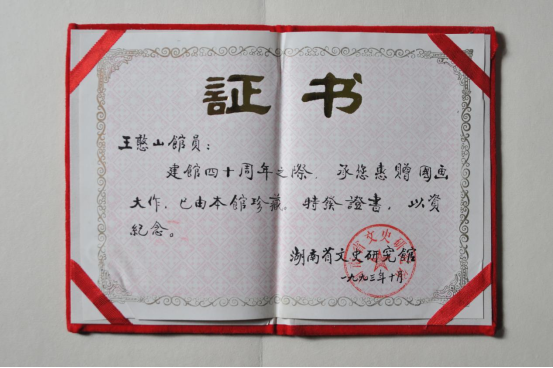 証书
王憨山館員：
建館四十周年之際，承您惠贈國画
大作，已由本館珍藏，特發證書，以資
紀念。
湖南省文史研究館
一九九三年十月